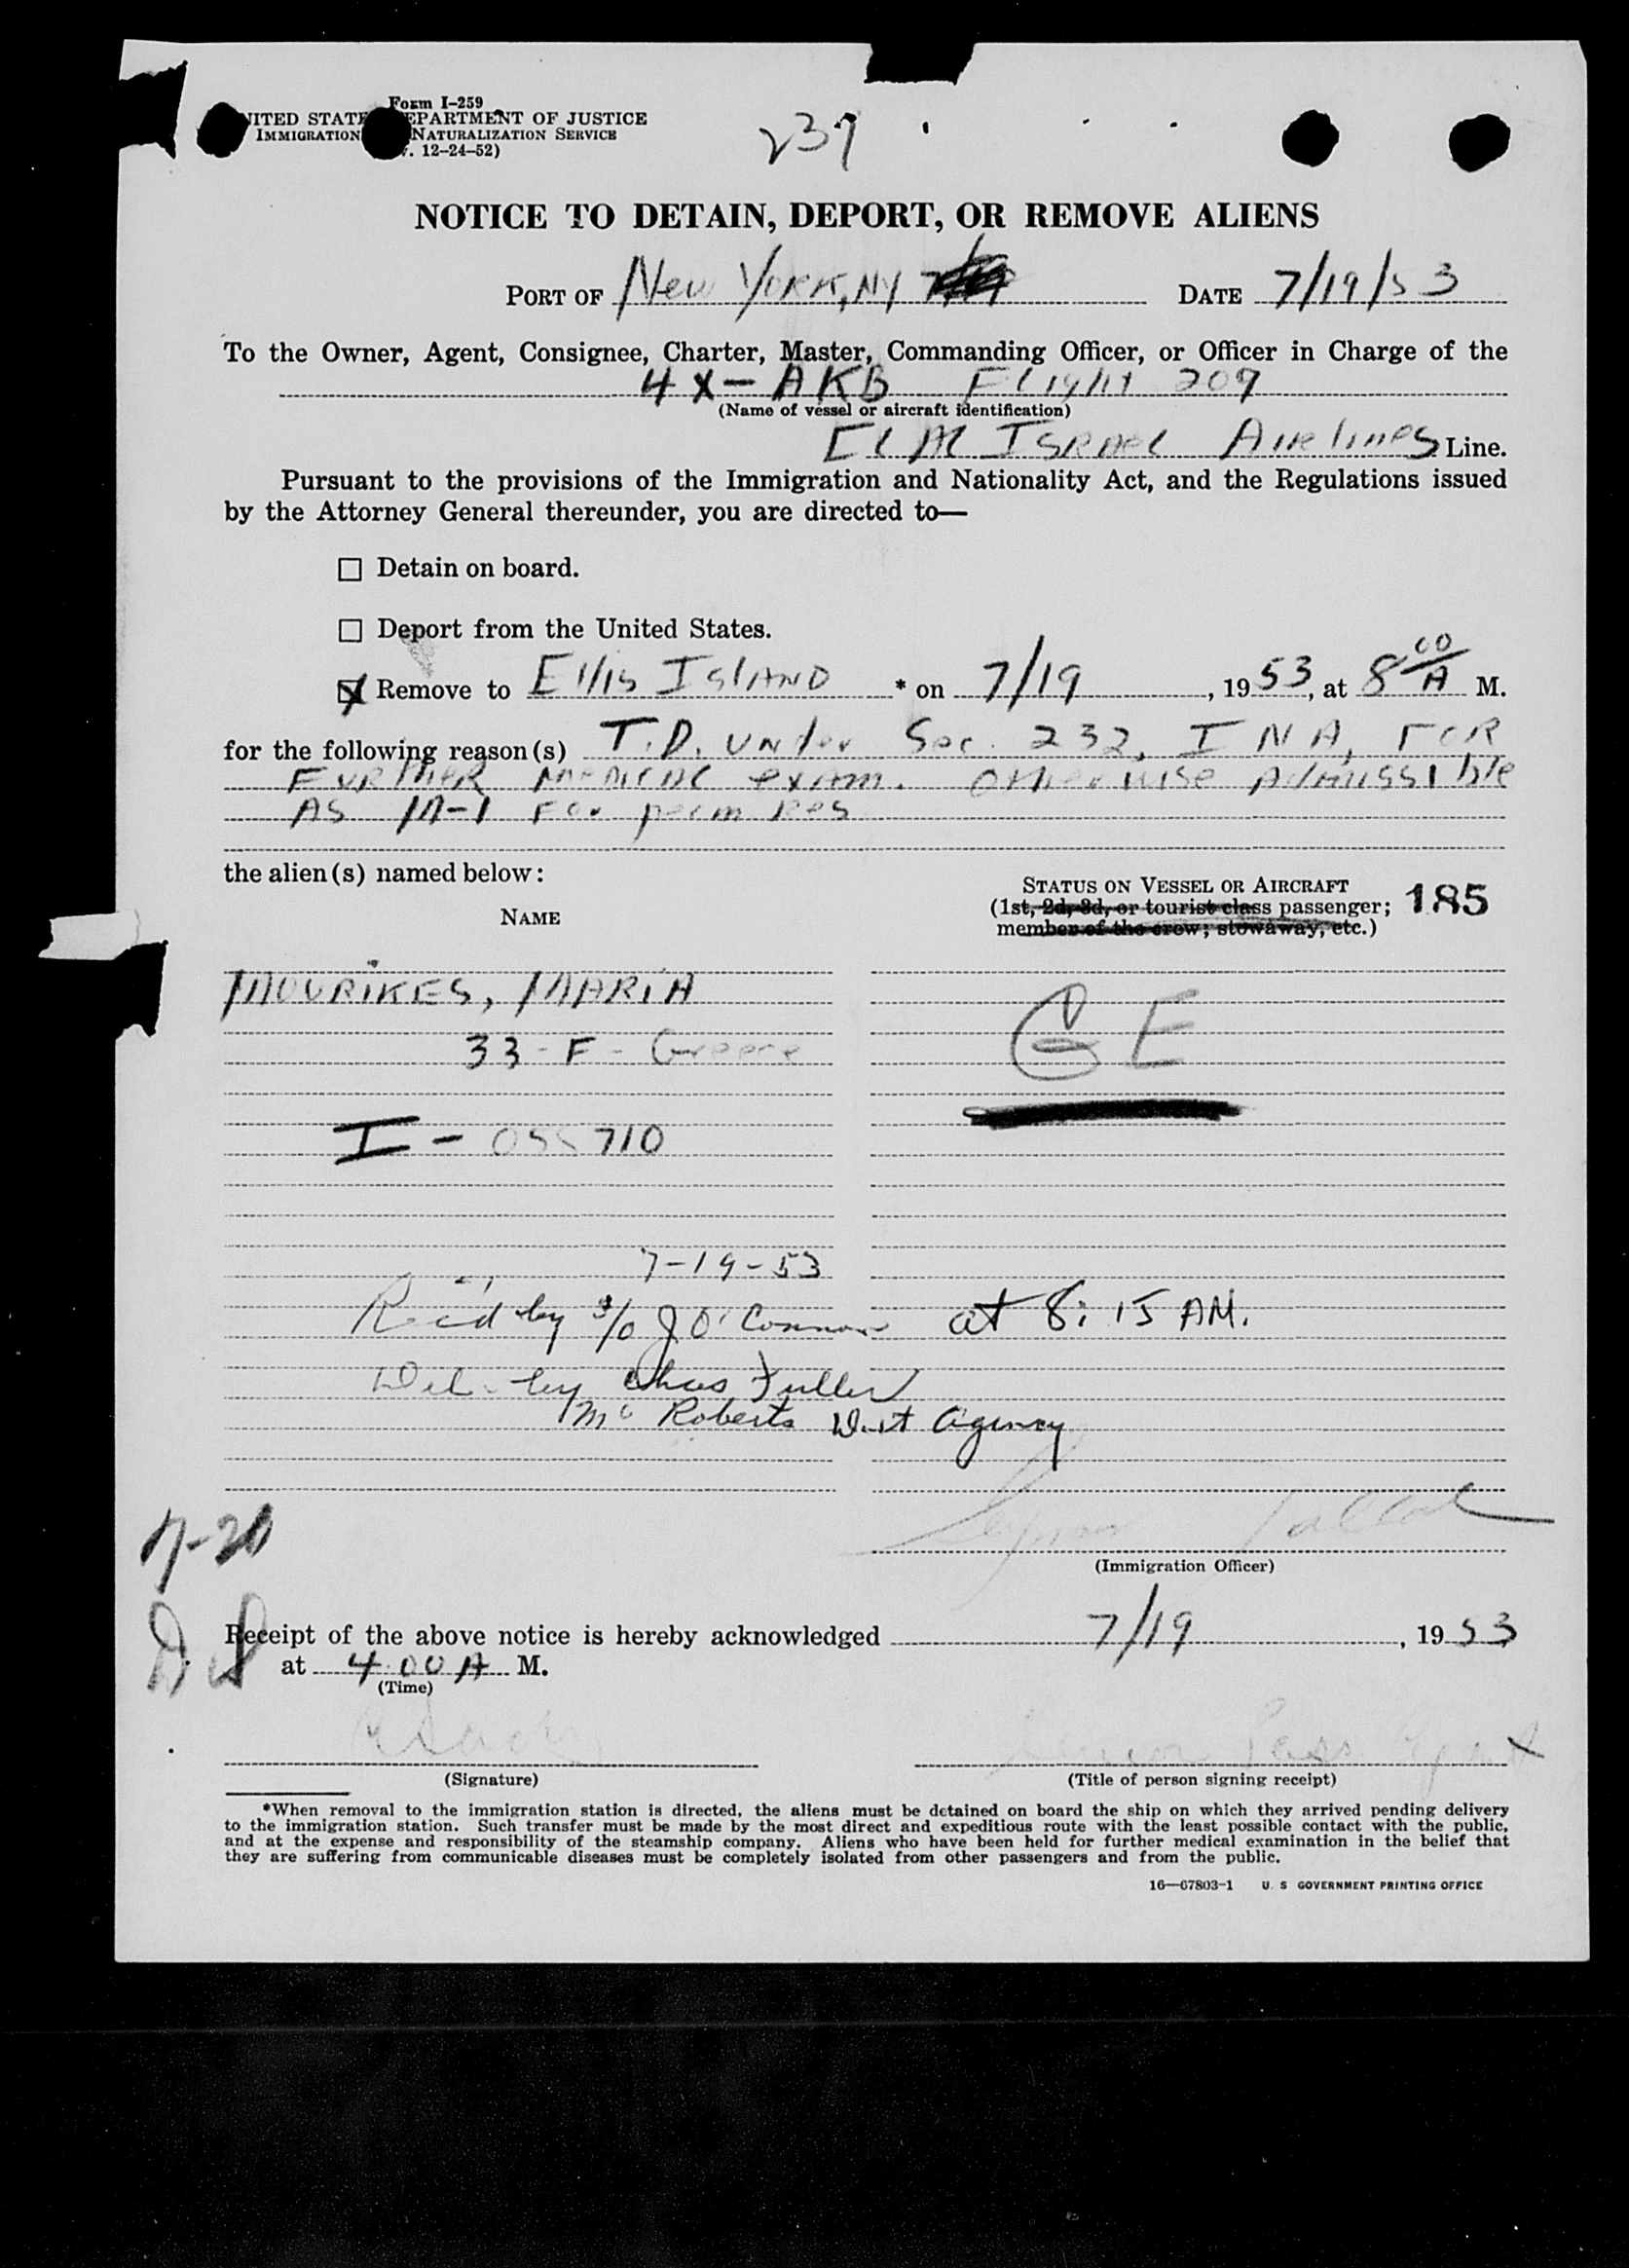 Form I-259
UNITED STATES DEPARTMENT OF JUSTICE
IMMIGRATION NATURALIZATION SERVICE
12-24-52)
237
NOTICE TO DETAIN, DEPORT, OR REMOVE ALIENS
PORT OF New York, NY DATE 7/19/53
To the Owner, Agent, Consignee, Charter, Master, Commanding Officer, or Officer in Charge of the
4X-AKB Flight 209
(Name of vessel or aircraft identification)
El Al Israel Airlines Line.
Pursuant to the provisions of the Immigration and Nationality Act, and the Regulations issued
by the Attorney General thereunder, you are directed to—
☐ Detain on board.
☐ Deport from the United States.
☒ Remove to Ellis Island * on 7/19, 1953, at 8 00 A M.
for the following reason(s) T.D. under Sec. 232, I N A, FOR
FURTHER MEDICAL exam. Otherwise Admissible
AS M-1 For perm Res
the alien(s) named below:
STATUS ON VESSEL OR AIRCRAFT
(1st, 2d, 3d, or tourist class passenger; 185
member of the crew; stowaway, etc.)
NAME
MOURIKES, MARIA
33 - F - Greece
GE
I - 055710
7-19-53
Rec'd by S/O J O'Connor at 8:15 AM.
Del. by Chas Fuller
McRoberts Det Agency
7-20
(Immigration Officer)
Receipt of the above notice is hereby acknowledged 7/19, 1953
at 4:00 A M.
(Time)
Senior Pass Agent
(Signature) (Title of person signing receipt)
*When removal to the immigration station is directed, the aliens must be detained on board the ship on which they arrived pending delivery
to the immigration station. Such transfer must be made by the most direct and expeditious route with the least possible contact with the public,
and at the expense and responsibility of the steamship company. Aliens who have been held for further medical examination in the belief that
they are suffering from communicable diseases must be completely isolated from other passengers and from the public.
16—67803-1 U. S GOVERNMENT PRINTING OFFICE